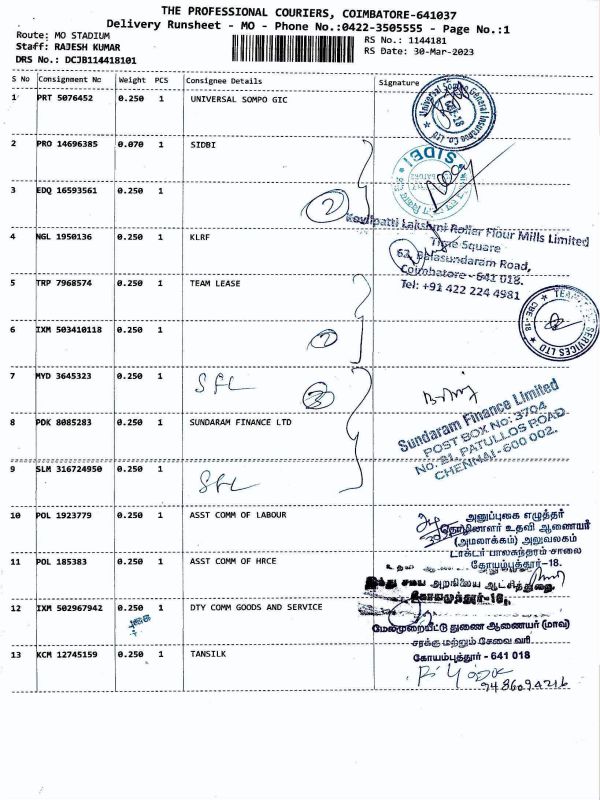 THE PROFESSIONAL COURIERS, COIMBATORE-641037
Delivery Runsheet - MO - Phone No.:0422-3505555 - Page No.:1
Route: MO STADIUM
RS No.: 1144181
Staff: RAJESH KUMAR
RS Date: 30-Mar-2023
DRS No.: DCJB114418101
S No Consignment No Weight PCS Consignee Details Signature
1 PRT 5076452 0.250 1 UNIVERSAL SOMPO GIC
Universal Sompo General Insurance Co. Ltd
2 PRO 14696385 0.070 1 SIDBI
SIDBI
3 EDQ 16593561 0.250 1
2
Kovilpatti Lakshmi Roller Flour Mills Limited
4 NGL 1950136 0.250 1 KLRF
Time Square
62, Balasundaram Road,
Coimbatore - 641 018.
Tel: +91 422 224 4981
5 TRP 7968574 0.250 1 TEAM LEASE
TEAM SERVICES LTD CBE-18
6 IXM 503410118 0.250 1
2
7 MYD 3645323 0.250 1 SFL
3
Sundaram Finance Limited
8 PDK 8085283 0.250 1 SUNDARAM FINANCE LTD
POST BOX NO: 3704
No. 21, PATULLOS ROAD.
CHENNAI - 600 002.
9 SLM 316724950 0.250 1
SFL
10 POL 1923779 0.250 1 ASST COMM OF LABOUR
அனுப்புகை எழுத்தர்
தொழிலாளர் உதவி ஆணையர்
(அமலாக்கம்) அலுவலகம்
டாக்டர் பாலசுந்தரம் சாலை
கோயம்புத்தூர்-18.
11 POL 185383 0.250 1 ASST COMM OF HRCE
இந்து சமய அறநிலைய ஆட்சித்துறை,
கோயமுத்தூர்-18,
12 IXM 502967942 0.250 1 DTY COMM GOODS AND SERVICE
மேல்முறையீட்டு துணை ஆணையர் (மாவ)
சரக்கு மற்றும் சேவை வரி
கோயம்புத்தூர் - 641 018
13 KCM 12745159 0.250 1 TANSILK
9486094216